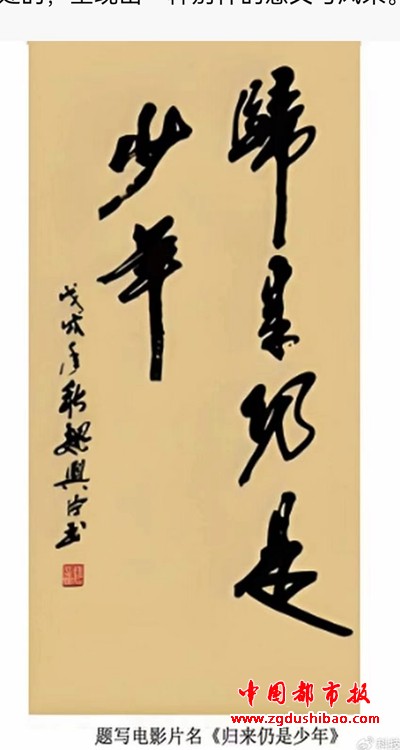 歸来仍是
少年
戊戌年秋魏興书
中國都市报
www.zgdushibao.com
题写电影片名《归来仍是少年》